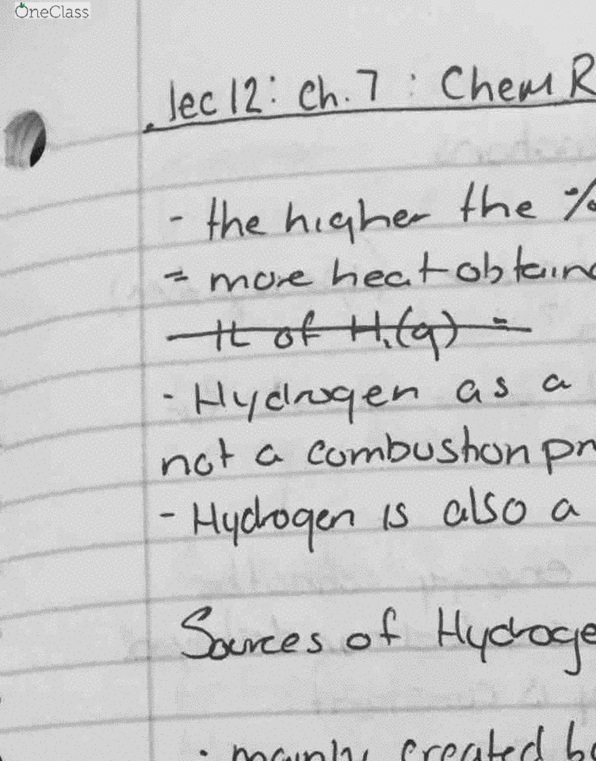 OneClass
lec 12: Ch. 7 : Chem R
- the higher the %
= more heat obtain
H of H₂(g) =
- Hydrogen as a
not a combustion pr
- Hydrogen is also a
Sources of Hydroge
· mainly created b